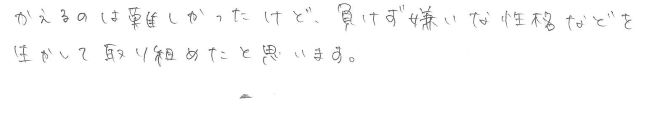 かえるのは難しかったけど、負けず嫌いな性格などを
生かして取り組めたと思います。